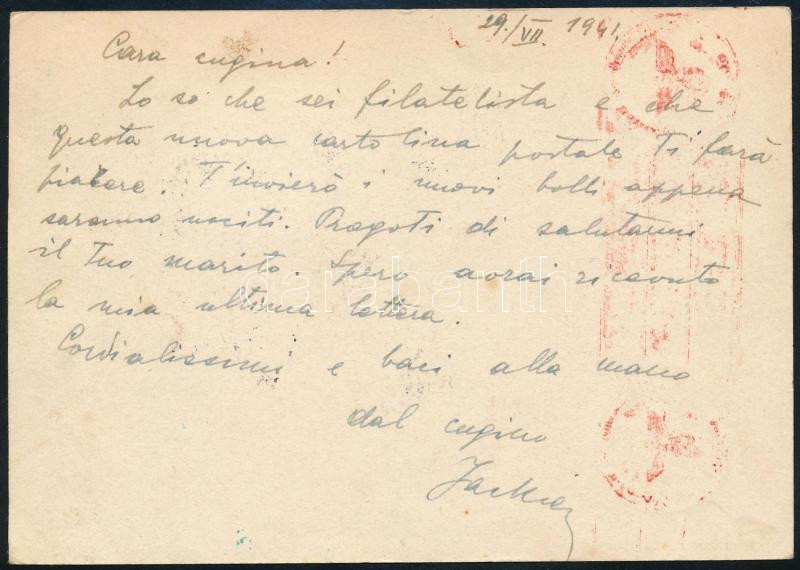 29./VII. 1941.
Cara cugina!
Lo so che sei filatelista e che
questa nuova cartolina postale Ti farà
piacere. T'invierò i nuovi bolli appena
saranno usciti. Pregoti di salutarmi
il Tuo marito. Spero avrai ricevuto
la mia ultima lettera.
Cordialissimi e baci alla mano
dal cugino
darabanth